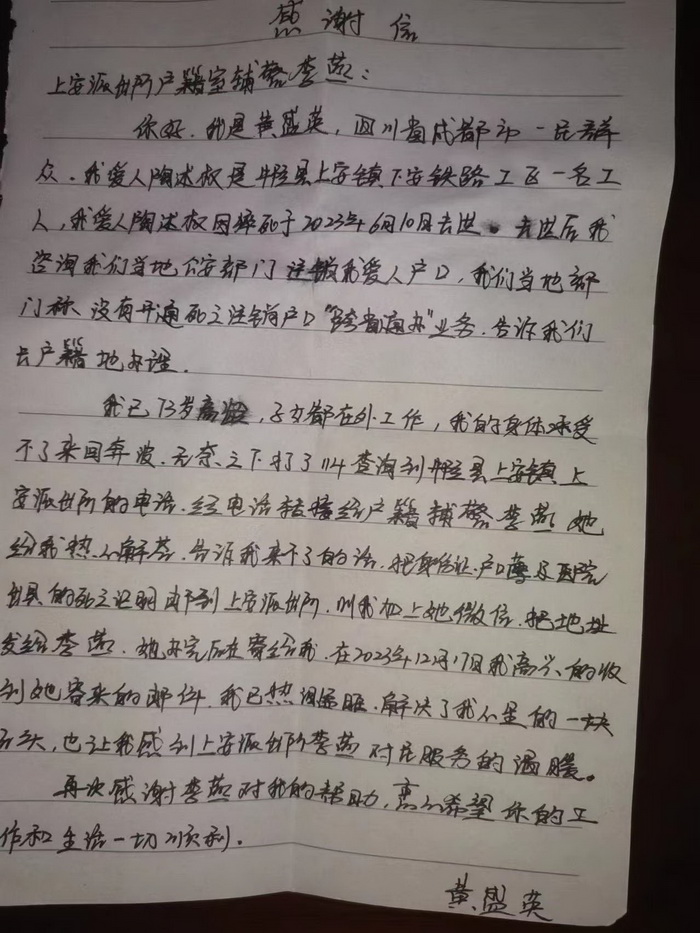 感谢信
上安派出所户籍室辅警李燕：
你好，我是黄盛英，四川省成都市一民群
众，我爱人陶述权是井陉县上安镇下安铁路工区一名工
人，我爱人陶述权因病死于2023年6月10日去世。去世后我
咨询我们当地公安部门注销我爱人户口，我们当地部
门称、没有开通死亡注销户口"跨省通办"业务，告诉我们
去户籍地办理.
我已73岁高龄，子女都在外工作，我的身体承受
不了来回奔波，无奈之下打了114查询到井陉县上安镇上
安派出所的电话.经电话转接给户籍辅警李燕她
给我热心解答.告诉我来不了的话，把身份证.户口薄及医院
出具的死亡证明邮到上安派出所.叫我加上她微信.把地址
发给李燕.她办完后在寄给我.在2023年12月17日我高兴的收
到她寄来的邮件.我已热泪盈眶.解决了我心里的一块
石头，也让我感到上安派出所李燕对民服务的温暖。
再次感谢李燕对我的帮助，衷心希望你的工
作和生活一切顺利.
黄盛英